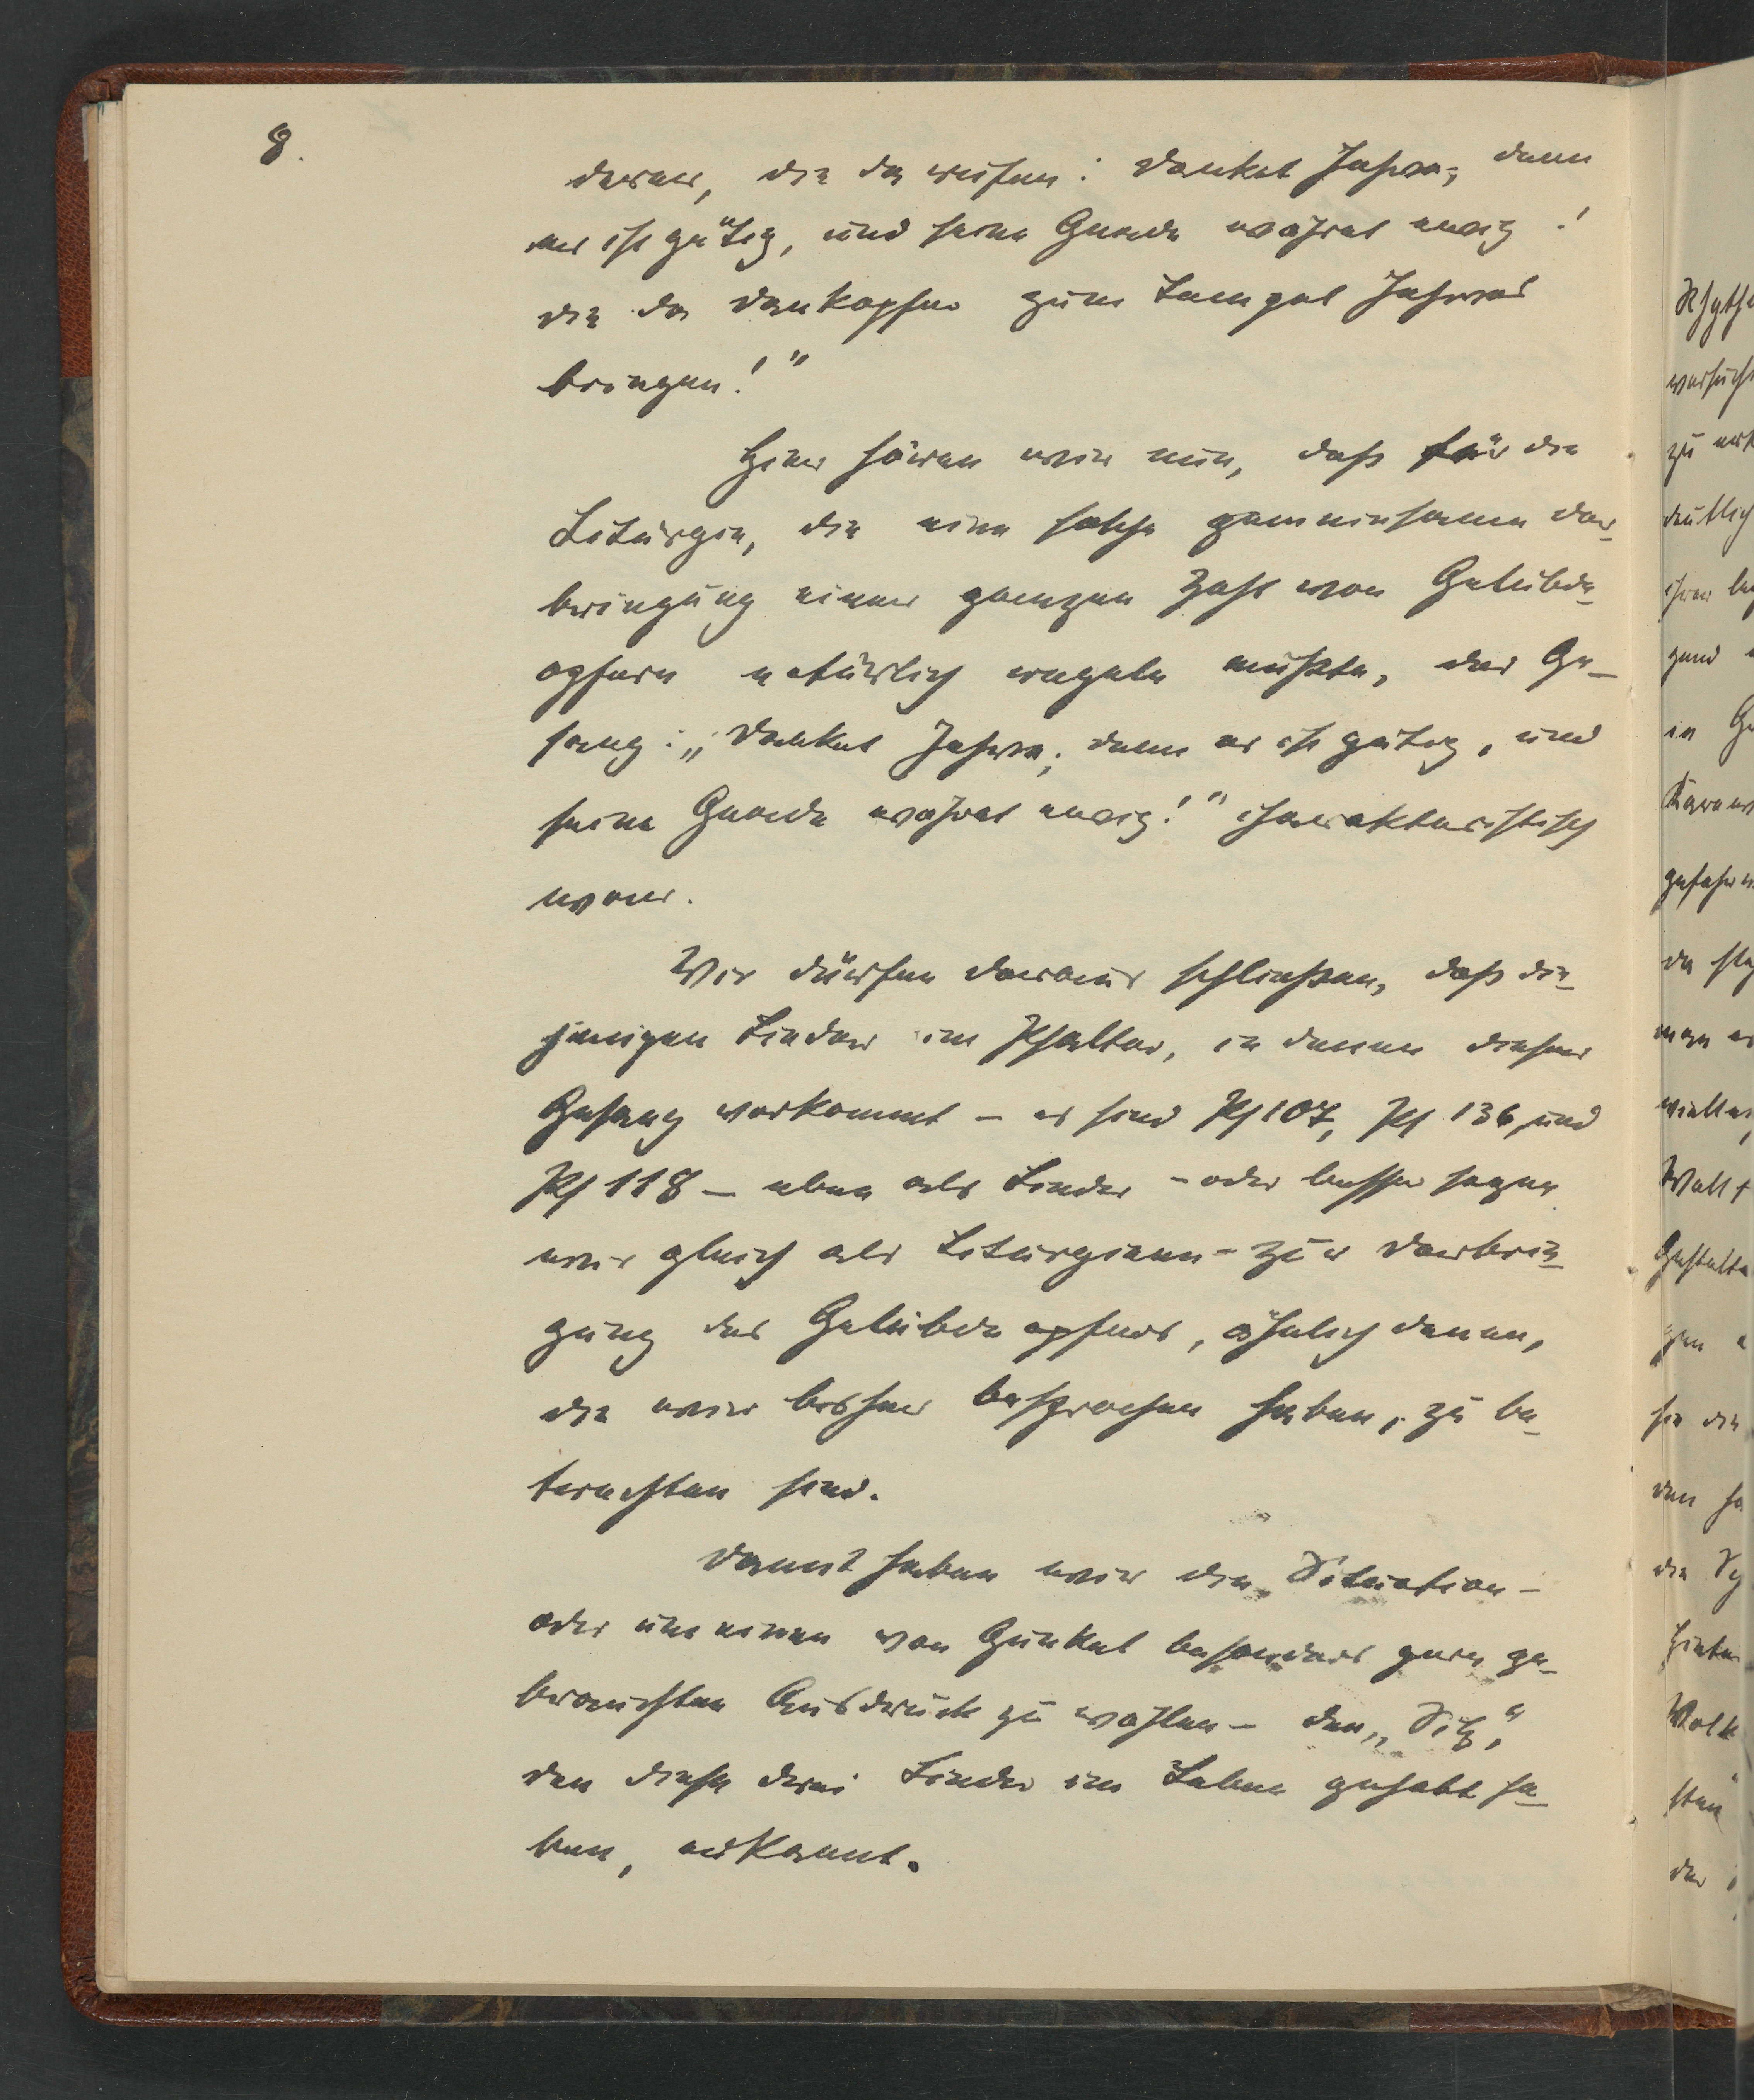 8.
derer, die da rufen: Danket Jahve, denn
er ist gütig, und seine Gnade währet ewig!
die da Dankopfer zum Tempel Jahves
bringen!"
Hier hören wir nun, daß für die
Liturgie, die eine solche gemeinsame Dar-
bringung einer ganzen Zahl von Gelübde-
opfern natürlich regeln mußte, der Ge-
sang: „Danket Jahve, denn er ist gütig, und
seine Gnade währet ewig!" charakteristisch
war.
Wir dürfen daraus schließen, daß die-
jenigen Lieder im Psalter, in denen dieser
Gesang vorkommt – es sind Ps 107, Ps 136, und
Ps 118 – eben als Lieder – oder besser sagen
wir gleich als Liturgieen – zur Darbrin-
gung des Gelübdeopfers, ähnlich denen,
die wir bisher besprochen haben, zu be-
trachten sind.
Damit haben wir die Situation –
oder um einen von Gunkel besonders gern ge-
brauchten Ausdruck zu wählen – den „Sitz",
den diese drei Lieder im Leben gehabt ha-
ben, erkannt.